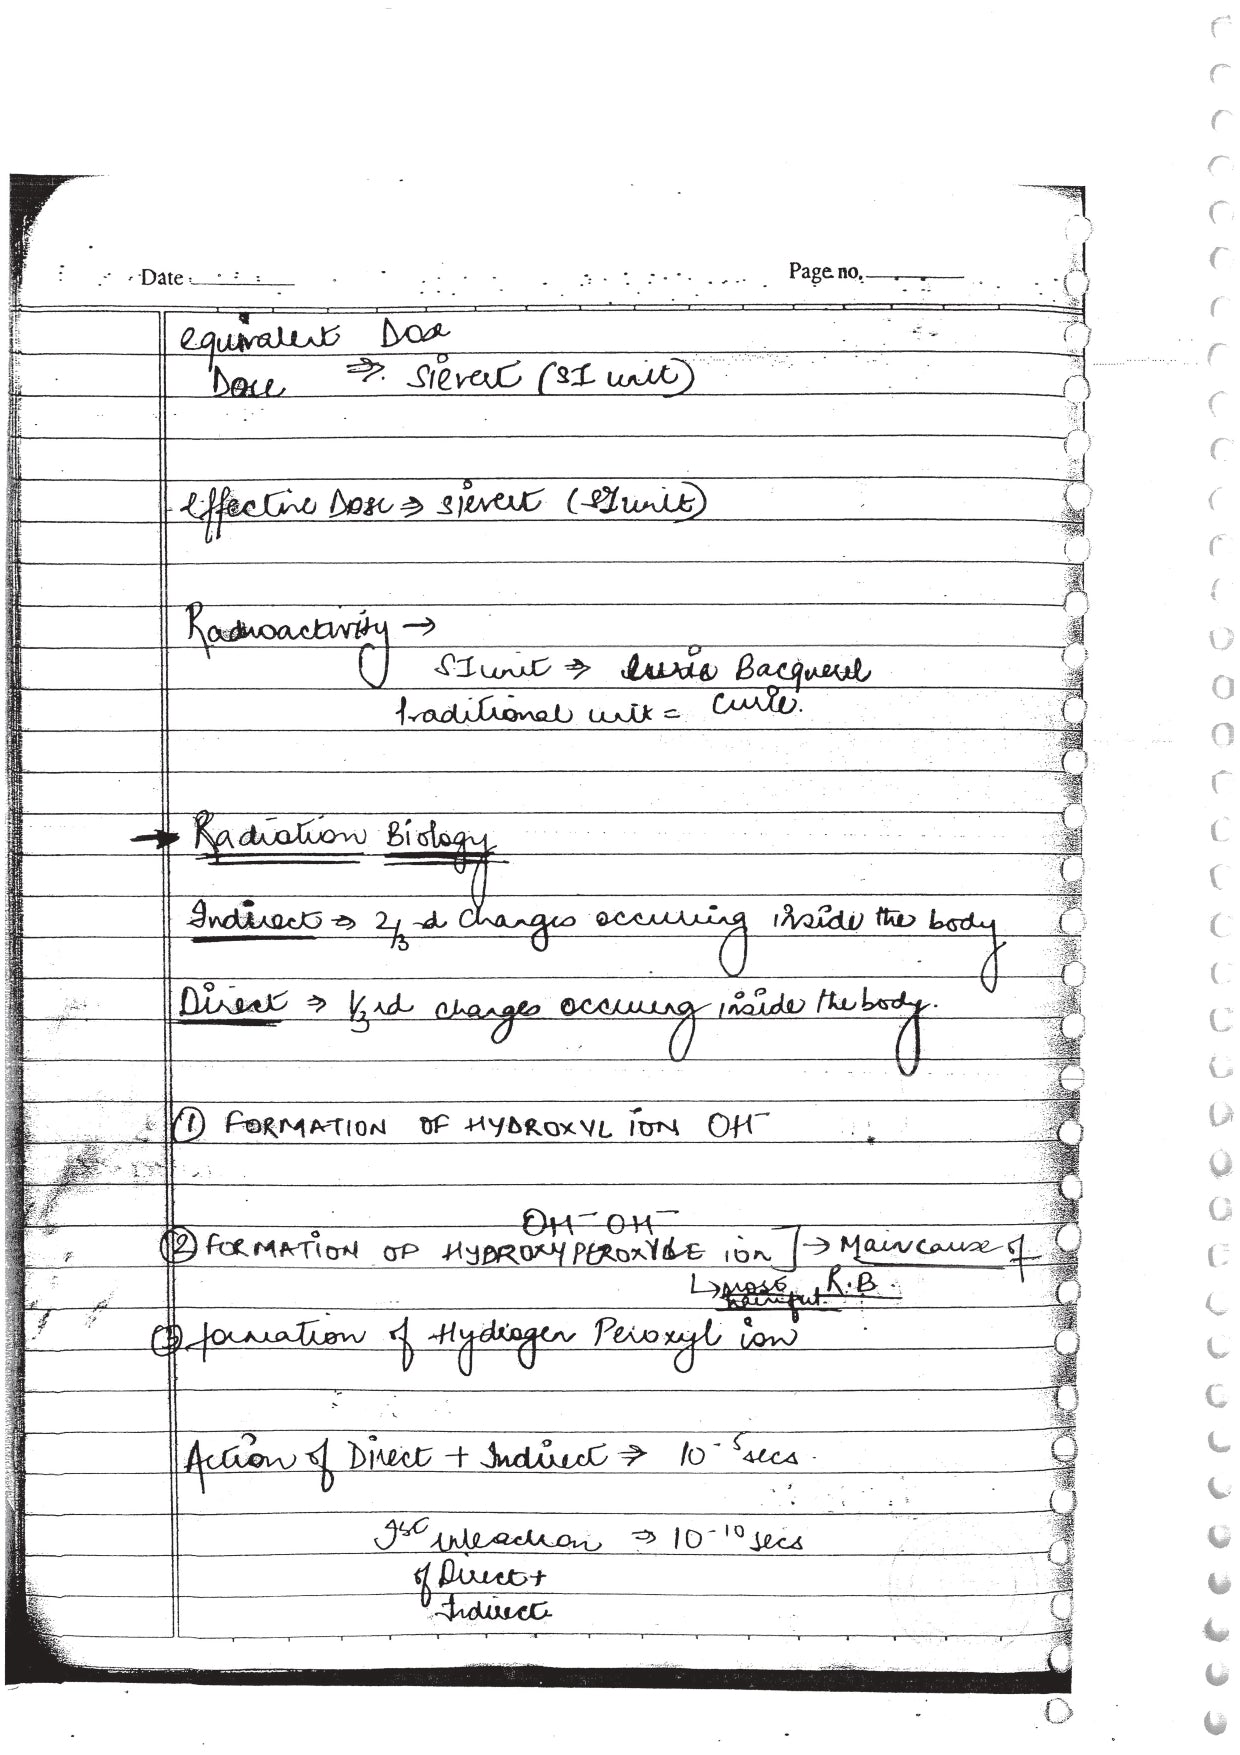 Date
Page no.
equivalent Dose
Dose ⇒ Sievert (SI unit)
Effective Dose ⇒ Sievert (SI unit)
Radioactivity →
SI unit ⇒ Bacquerel
traditional unit = Curie.
→ Radiation Biology
Indirect ⇒ 2/3 rd changes occuring inside the body
Direct ⇒ 1/3 rd changes occuring inside the body.
① FORMATION OF HYDROXYL ION OH⁻
OH⁻ OH⁻
② FORMATION OF HYDROXYPEROXYDE ion ] → Main cause of
↳ most R.B.
harmful.
③ formation of Hydrogen Peroxyl ion
Action of Direct + Indirect ⇒ 10⁻⁵ secs.
Ist interaction ⇒ 10⁻¹⁰ secs
of Direct +
Indirect